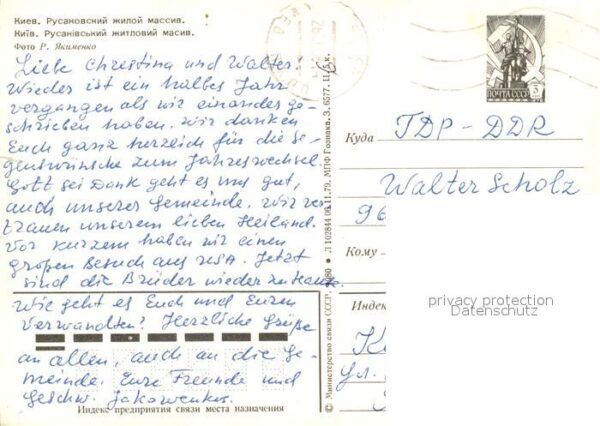 Киев. Русановский жилой массив.
Київ. Русанівський житловий масив.
Фото Р. Якименко
Liebe Christina und Walter!
Wieder ist ein halbes Jahr
vergangen als wir einander ge-
schrieben haben. Wir danken
Euch ganz herzlich für die Se-
genswünsche zum Jahreswechsel.
Gott sei Dank geht es uns gut,
auch unserer Gemeinde. Wir ver-
trauen unserem lieben Heiland.
Vor kurzem haben wir einen
großen Besuch aus USA. Jetzt
sind die Brüder wieder zuhause.
Wie geht es Euch und Euren
Verwandten? Herzliche Grüße
an allen, auch an die Ge-
meinde. Eure Freunde und
Geschw. Jakowenko.
Индекс предприятия связи места назначения
© Министерство связи СССР, 1980 • Л 102844 06.11.79. МПФ Гознака. З. 6577. Ц. 5 к.
ПОЧТА СССР 3
Куда ГДР - DDR
Walter Scholz
96
Кому
Индек
privacy protection
Datenschutz
ул.